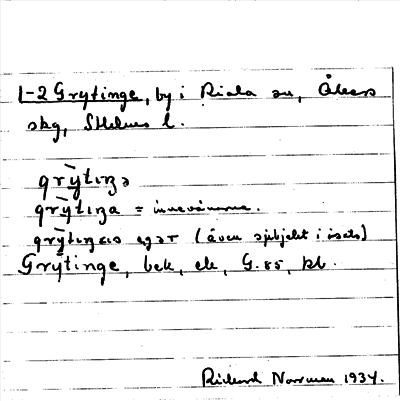 1-2 Grytinge, by i Riala sn, Åkers
skg, Sthlms l.
grȳtıŋə
grȳtıŋa = innevånarna.
grȳtıŋ ägər (även subjekt i sats)
Grytinge, bek, ek, G.85, kl.
Rickard Norrman 1934.